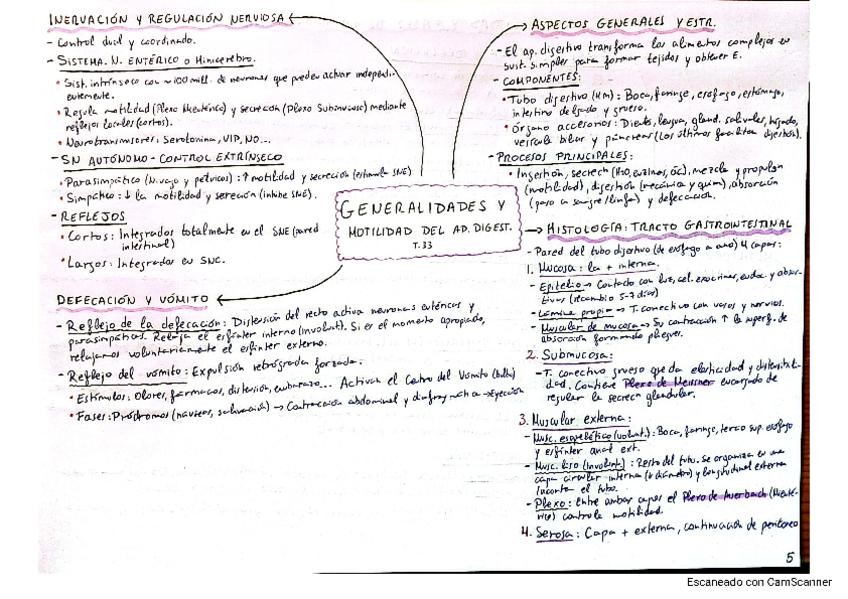 INERVACIÓN Y REGULACIÓN NERVIOSA
- Control dual y coordinado.
- SISTEMA. N. ENTÉRICO o Minicerebro.
• Sist. intrínseco con ~100 mill. de neuronas que pueden activar independi-
entemente.
• Regula motilidad (Plexo Mientérico) y secreción (Plexo Submucoso) mediante
reflejos locales (cortos).
• Neurotransmisores: Serotonina, VIP, NO...
- SN AUTÓNOMO - CONTROL EXTRÍNSECO
• Parasimpático (N. vago y pélvicos): ↑ motilidad y secreción (estimula SNE)
• Simpático: ↓ la motilidad y sereción (inhibe SNE).
- REFLEJOS
• Cortos: Integrados totalmente en el SNE (pared
intestinal)
• Largos: Integrados en SNC.
DEFECACIÓN Y VÓMITO
- Reflejo de la defecación: Distensión del recto activa neuronas entéricas y
parasimpáticas. Relaja el esfínter interno (involunt). Si es el momento apropiado,
relajamos voluntariamente el esfínter externo.
- Reflejo del vómito: Expulsión retrógrada forzada.
• Estímulos: Olores, fármacos, distensión, embarazo... Activa el Centro del Vómito (bulbo)
• Fases: Pródromos (náuseas, salivación) → Contracción abdominal y diafragmática → Eyección
GENERALIDADES Y
MOTILIDAD DEL AP. DIGEST.
T.33
ASPECTOS GENERALES Y ESTR.
- El ap. digestivo transforma los alimentos complejos en
sust. simples para formar tejidos y obtener E.
- COMPONENTES:
• Tubo digestivo (Hm): Boca, faringe, esofago, estómago,
intestino delgado y grueso.
• Órgano accesorios: Dientes, lengua, gland. salivales, hígado,
vesícula biliar y páncreas (Los últimos facilitan digestión).
- PROCESOS PRINCIPALES:
• Ingestión, secreción (H2O, enzimas, ác), mezcla y propulsión
(motilidad), digestión (mecánica y quím), absorción
(paso a sangre/linfa) y defecación.
HISTOLOGÍA: TRACTO GASTROINTESTINAL
- Pared del tubo digestivo (de esófago a ano) 4 capas:
1. Mucosa: la + interna.
- Epitelio → Contacto con luz, cel. exocrinas, endoc. y absor-
tivas (recambio 5-7 días)
- Lamina propia → T. conectivo con vasos y nervios.
- Muscular de mucosa → Su contracción ↑ la superf. de
absorción formando pliegues.
2. Submucosa:
- T. conectivo grueso que da elasticidad y distensibili-
dad. Contiene Plexo de Meissner encargado de
regular la secreción glandular.
3. Muscular externa:
- Musc. esquelético (volunt.): Boca, faringe, tercio sup. esofago
y esfínter anal ext.
- Musc. liso (Involunt): Resto del tubo. Se organiza en una
capa circular interna (↓ diámetro) y longitudinal externa
(acorta el tubo.
- Plexo: Entre ambas capas el Plexo de Auerbach (Mienté-
rico) controla motilidad.
4. Serosa: Capa + externa, continuación de peritoneo
5
Escaneado con CamScanner